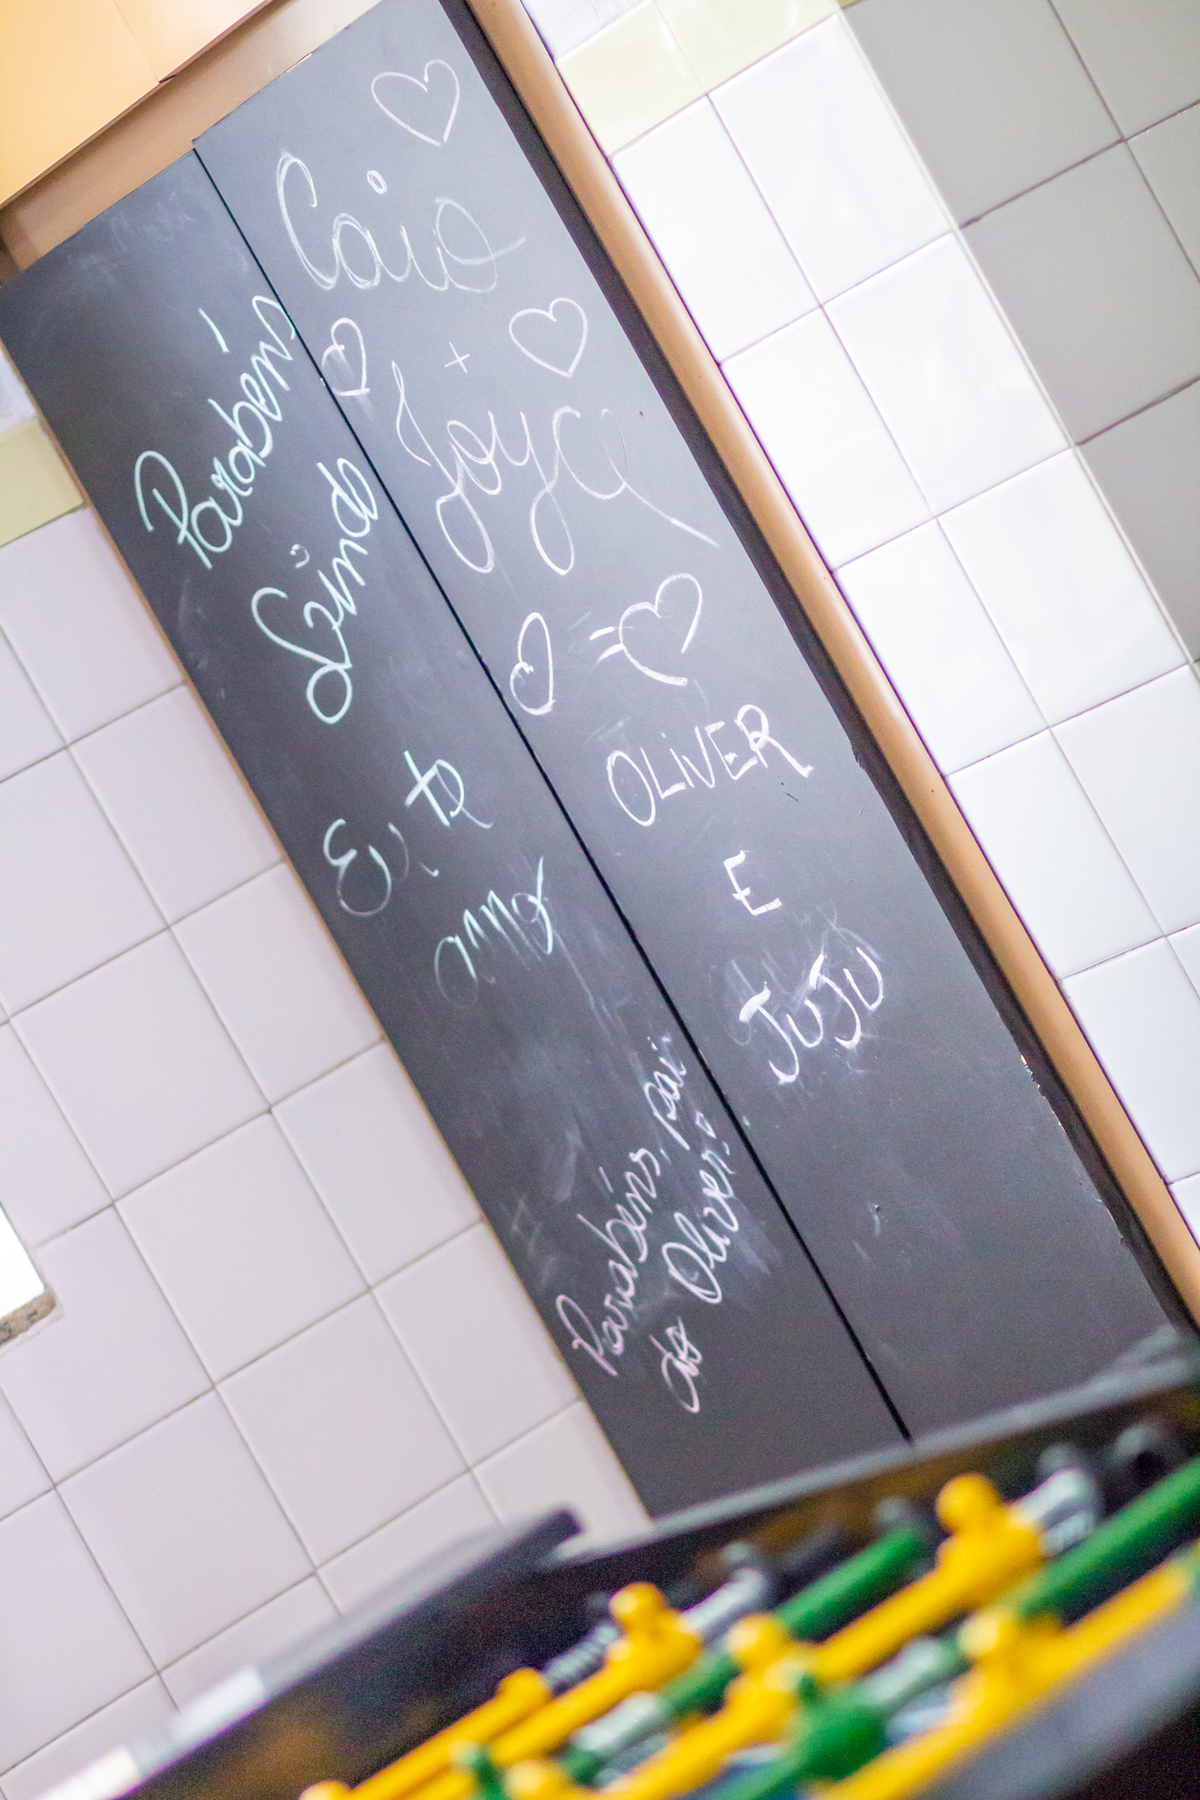 Parabéns
Lindo
Eu te
amo
Parabéns, pai
do Oliver!
Caio
+
Joyce
=
OLIVER
E
JUJU